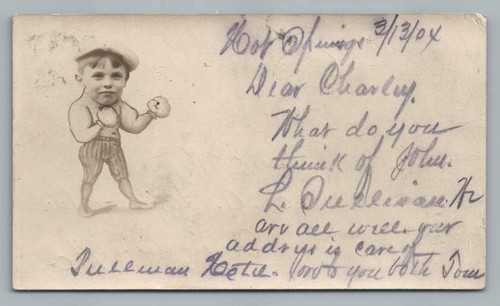 Hot Springs 3/13/04
Dear Charley,
What do you
think of John.
L. Sullivan. We
are all well. your
address is care of
Pullman Hotel. love you both Tom